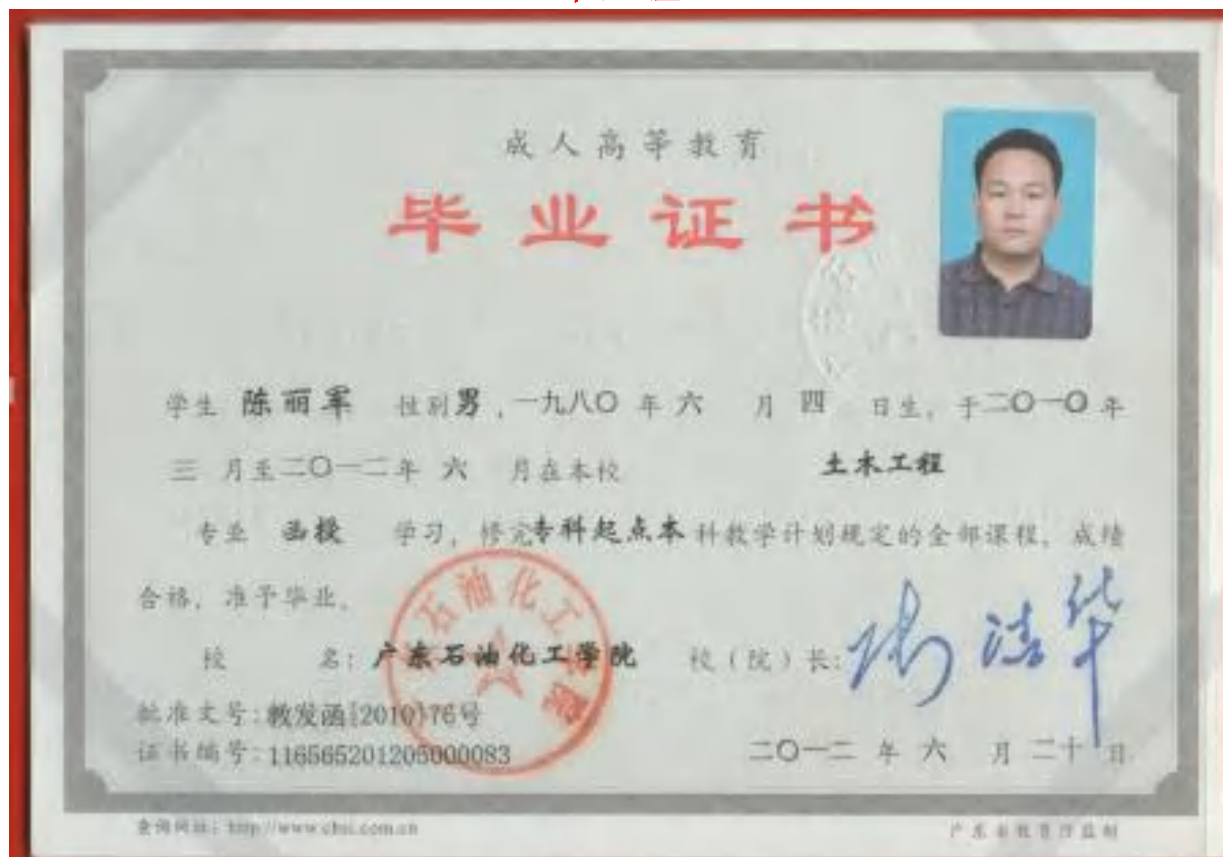 成人高等教育
毕业证书
学生 陈丽军 性别 男 ,一九八〇 年 六 月 四 日生, 于二〇一〇 年
三 月至二〇一二年 六 月在本校 土木工程
专业 函授 学习, 修完专科起点本 科教学计划规定的全部课程, 成绩
合格, 准予毕业。
校 名: 广东石油化工学院 校(院)长:
批准文号: 教发函[2010]76号
证书编号: 116565201205000083 二〇一二 年 六 月 二十 日
查询网址: http://www.chsi.com.cn 广东省教育厅监制
石油化工学院